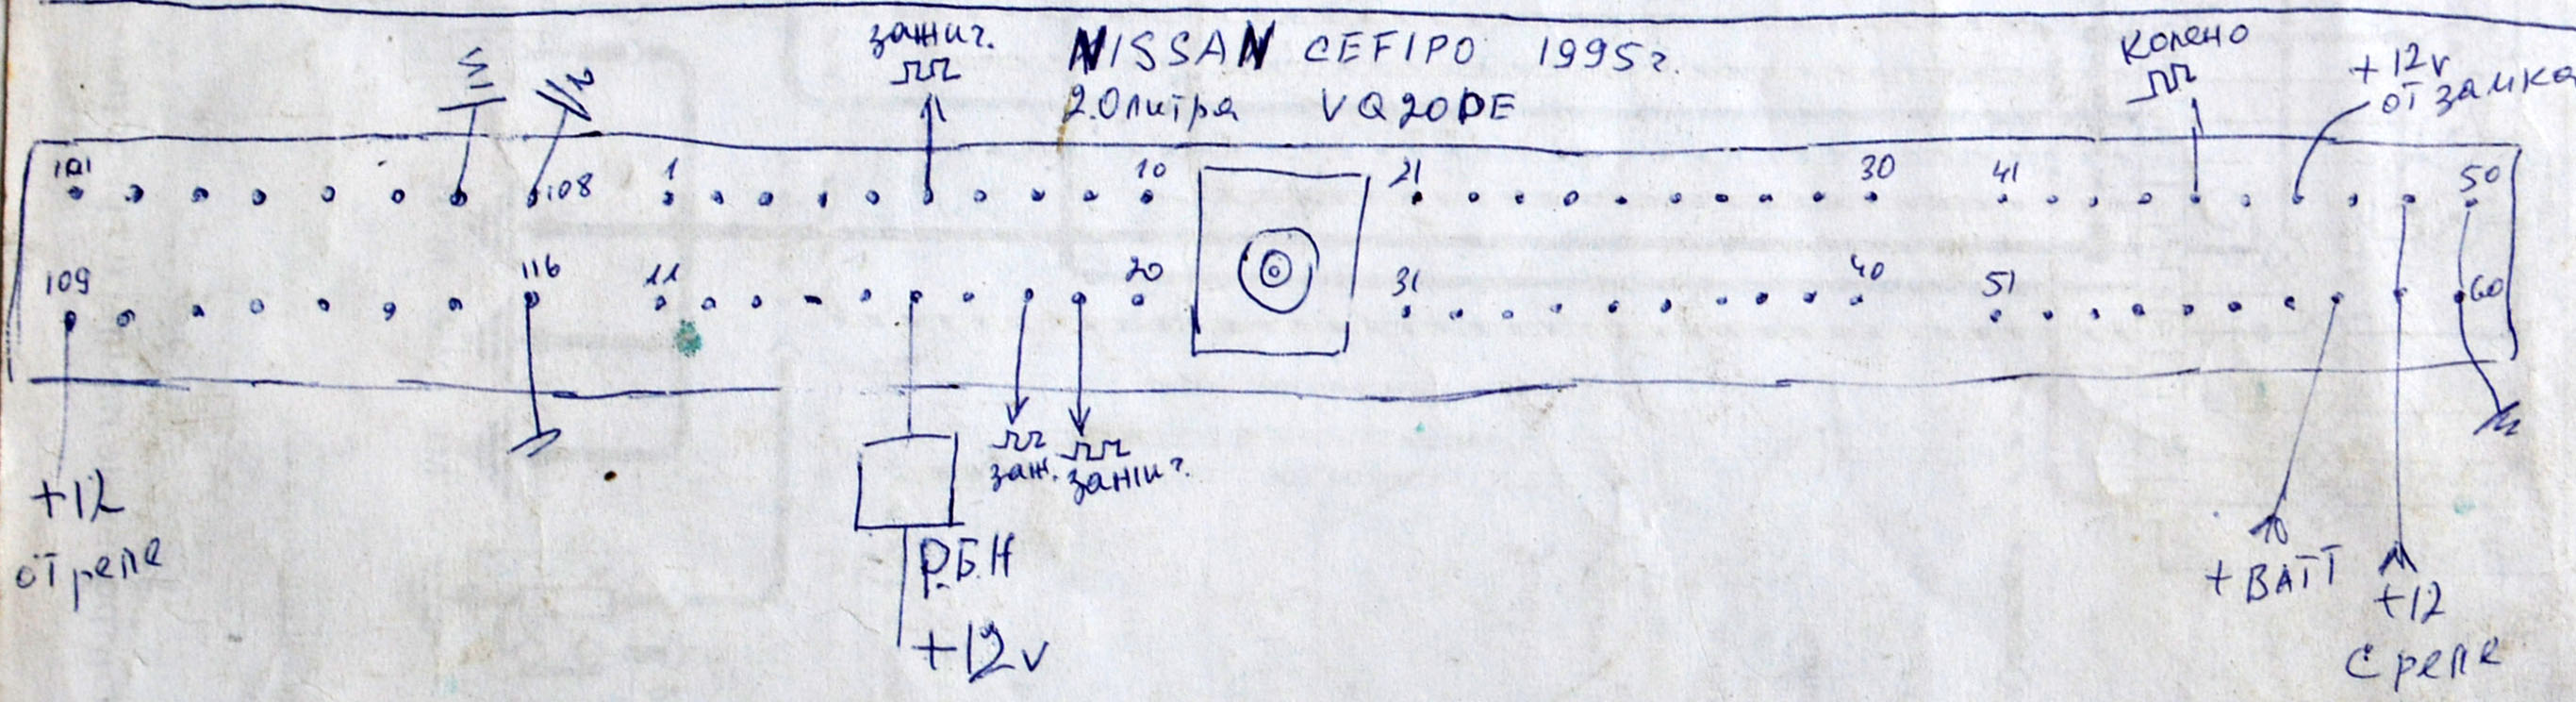 зажиг.
NISSAN CEFIPO 1995г.
2.0 литра VQ20DE
колено
+12v
от замка
101
108
1
10
21
30
41
50
109
116
11
20
31
40
51
60
+12
от реле
заж.
зажиг.
Р.Б.Н
+12v
+ВАТТ
+12
с реле